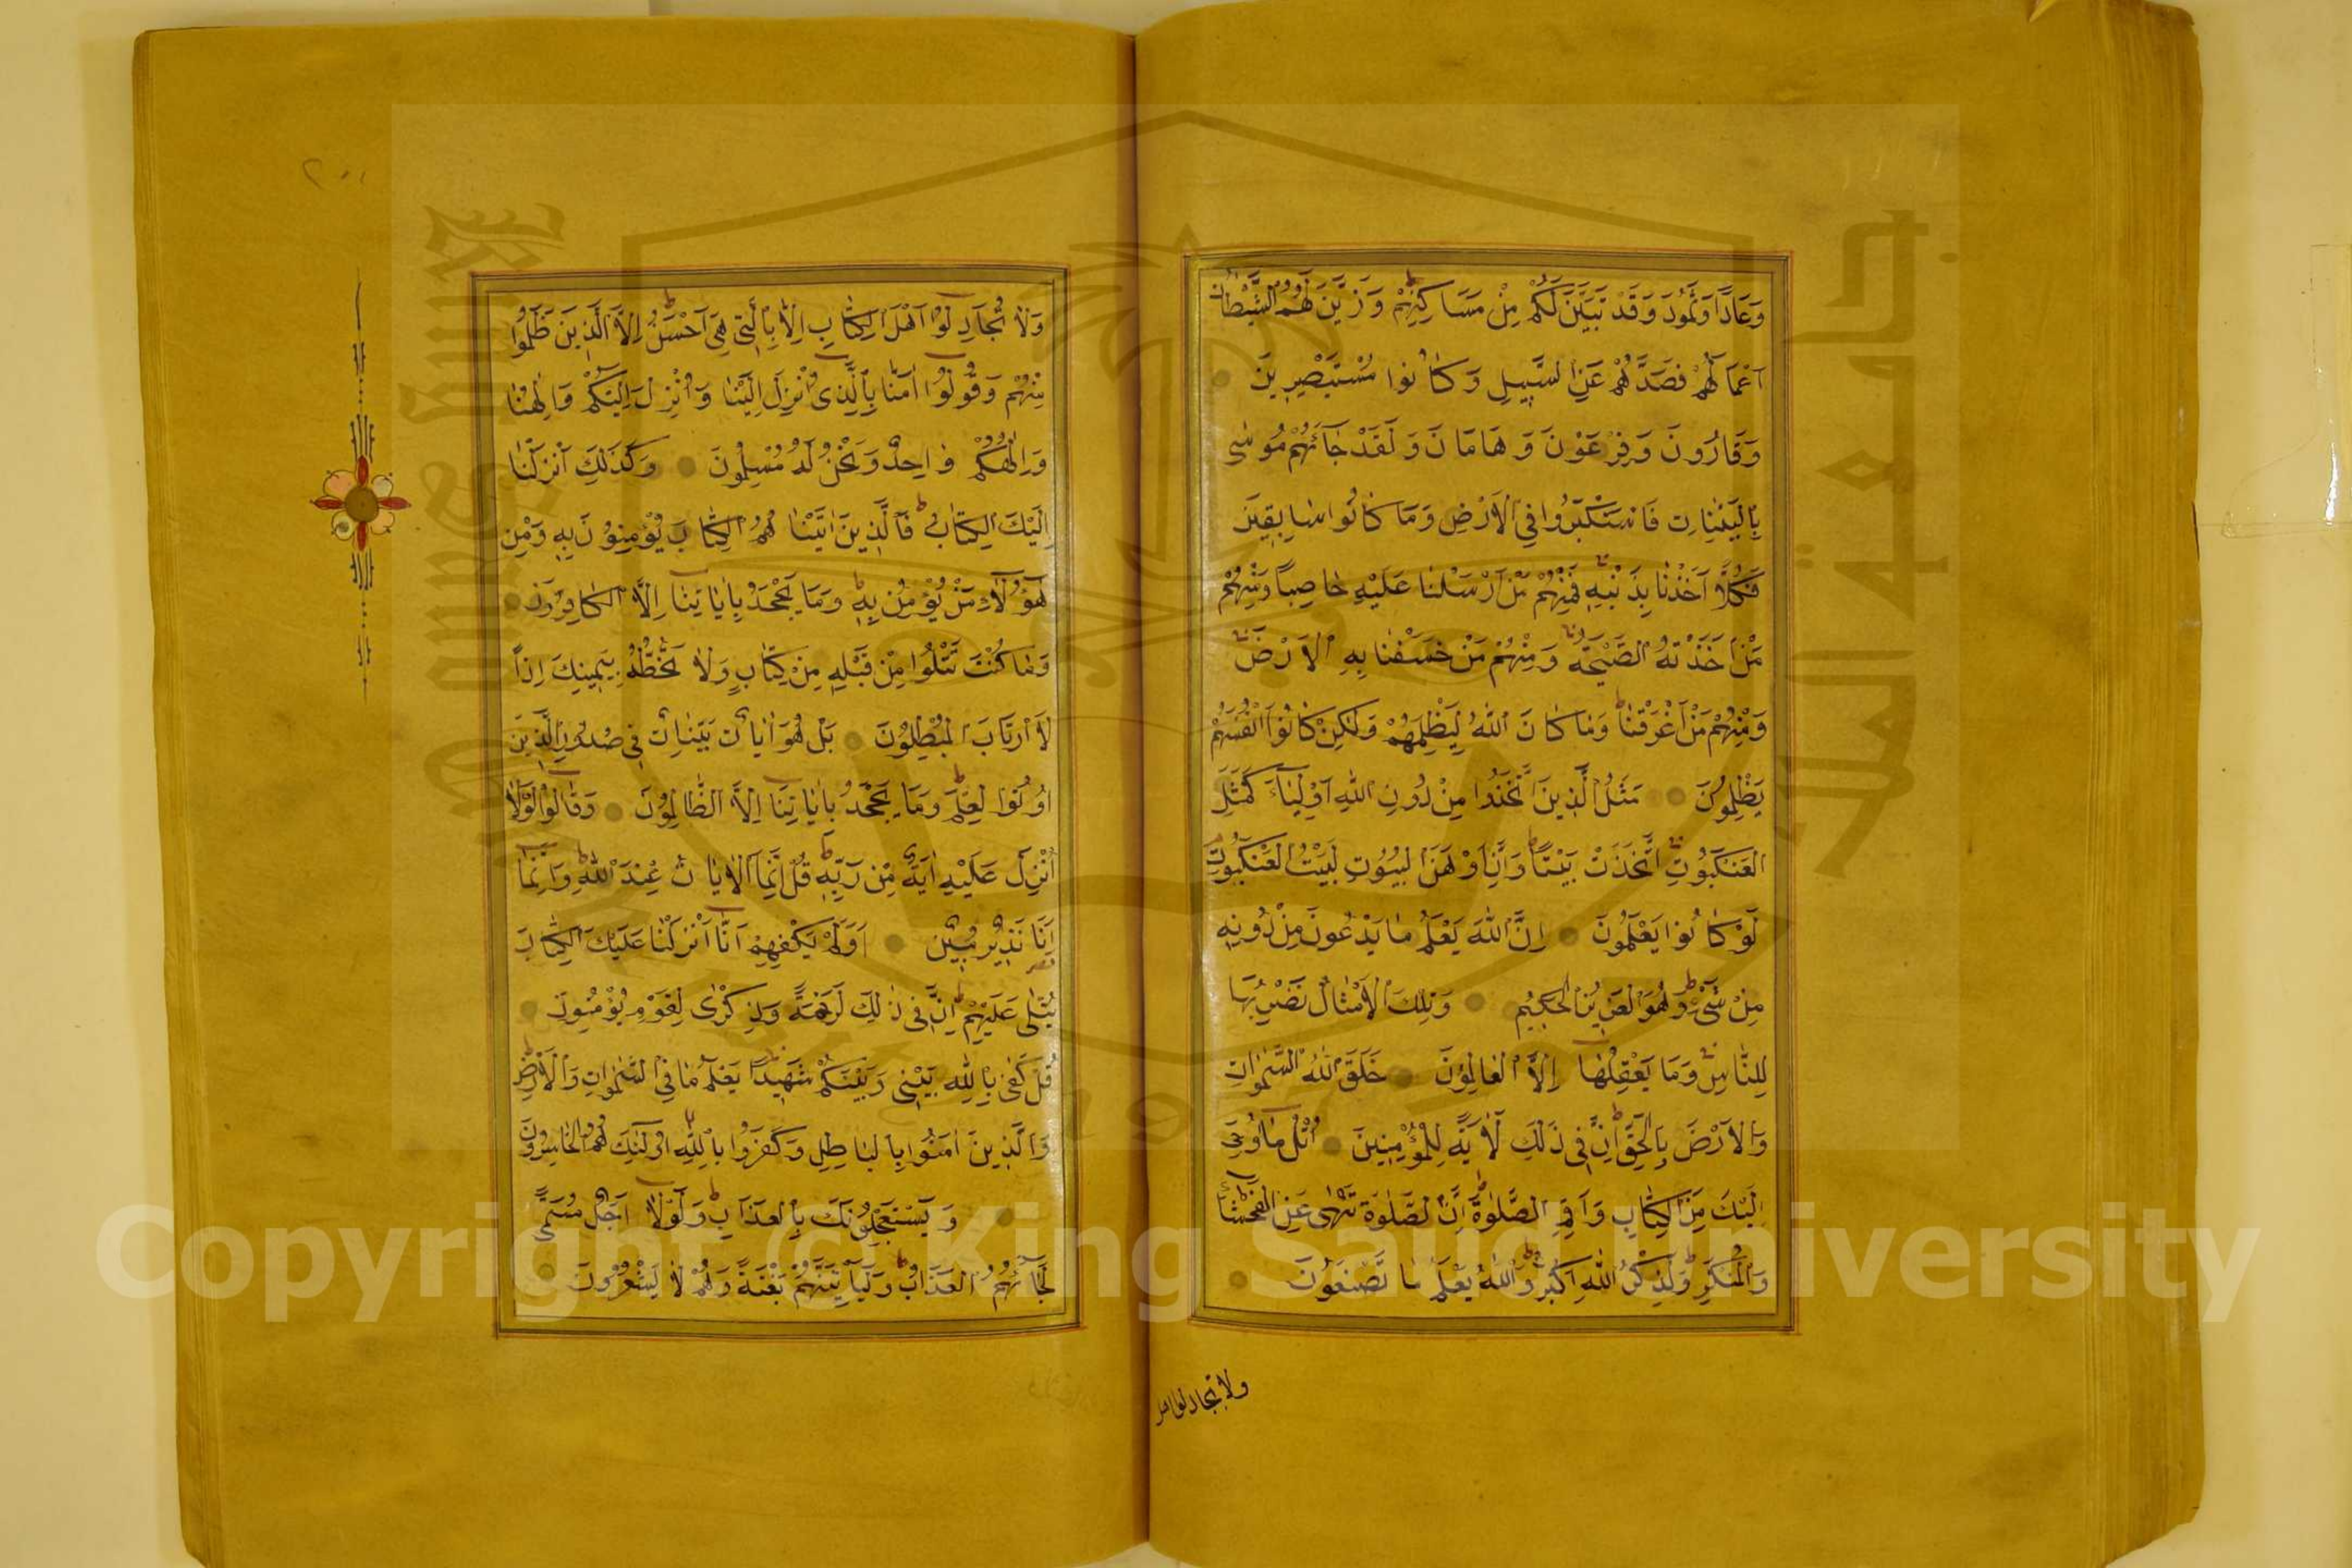 وَعَادًا وَثَمُودَ وَقَدْ تَبَيَّنَ لَكُمْ مِنْ مَسَاكِنِهِمْ وَزَيَّنَ لَهُمُ الشَّيْطَانُ
اَعْمَالَهُمْ فَصَدَّهُمْ عَنِ السَّبِيلِ وَكَانُوا مُسْتَبْصِرِينَ
وَقَارُونَ وَفِرْعَوْنَ وَهَامَانَ وَلَقَدْ جَآءَهُمْ مُوسٰى
بِالْبَيِّنَاتِ فَاسْتَكْبَرُوا فِي الْاَرْضِ وَمَا كَانُوا سَابِقِينَ
فَكُلًّا اَخَذْنَا بِذَنْبِهِ فَمِنْهُمْ مَنْ اَرْسَلْنَا عَلَيْهِ حَاصِبًا وَمِنْهُمْ
مَنْ اَخَذَتْهُ الصَّيْحَةُ وَمِنْهُمْ مَنْ خَسَفْنَا بِهِ الْاَرْضَ
وَمِنْهُمْ مَنْ اَغْرَقْنَا وَمَا كَانَ اللّٰهُ لِيَظْلِمَهُمْ وَلٰكِنْ كَانُوا اَنْفُسَهُمْ
يَظْلِمُونَ مَثَلُ الَّذِينَ اتَّخَذُوا مِنْ دُونِ اللّٰهِ اَوْلِيَآءَ كَمَثَلِ
الْعَنْكَبُوتِ اتَّخَذَتْ بَيْتًا وَاِنَّ اَوْهَنَ الْبُيُوتِ لَبَيْتُ الْعَنْكَبُوتِ
لَوْ كَانُوا يَعْلَمُونَ اِنَّ اللّٰهَ يَعْلَمُ مَا يَدْعُونَ مِنْ دُونِهِ
مِنْ شَىْءٍ وَهُوَ الْعَزِيزُ الْحَكِيمُ وَتِلْكَ الْاَمْثَالُ نَضْرِبُهَا
لِلنَّاسِ وَمَا يَعْقِلُهَا اِلَّا الْعَالِمُونَ خَلَقَ اللّٰهُ السَّمٰوَاتِ
وَالْاَرْضَ بِالْحَقِّ اِنَّ فِى ذٰلِكَ لَاٰيَةً لِلْمُؤْمِنِينَ اُتْلُ مَا اُوحِىَ
اِلَيْكَ مِنَ الْكِتَابِ وَاَقِمِ الصَّلٰوةَ اِنَّ الصَّلٰوةَ تَنْهٰى عَنِ الْفَحْشَآءِ
وَالْمُنْكَرِ وَلَذِكْرُ اللّٰهِ اَكْبَرُ وَاللّٰهُ يَعْلَمُ مَا تَصْنَعُونَ
ولا تجادلوا اهل
وَلَا تُجَادِلُوا اَهْلَ الْكِتَابِ اِلَّا بِالَّتِى هِىَ اَحْسَنُ اِلَّا الَّذِينَ ظَلَمُوا
مِنْهُمْ وَقُولُوا اٰمَنَّا بِالَّذِى اُنْزِلَ اِلَيْنَا وَاُنْزِلَ اِلَيْكُمْ وَاِلٰهُنَا
وَاِلٰهُكُمْ وَاحِدٌ وَنَحْنُ لَهُ مُسْلِمُونَ وَكَذٰلِكَ اَنْزَلْنَا
اِلَيْكَ الْكِتَابَ فَالَّذِينَ اٰتَيْنَاهُمُ الْكِتَابَ يُؤْمِنُونَ بِهِ وَمِنْ
هٰؤُلَآءِ مَنْ يُؤْمِنُ بِهِ وَمَا يَجْحَدُ بِاٰيَاتِنَا اِلَّا الْكَافِرُونَ
وَمَا كُنْتَ تَتْلُوا مِنْ قَبْلِهِ مِنْ كِتَابٍ وَلَا تَخُطُّهُ بِيَمِينِكَ اِذًا
لَارْتَابَ الْمُبْطِلُونَ بَلْ هُوَ اٰيَاتٌ بَيِّنَاتٌ فِى صُدُورِ الَّذِينَ
اُوتُوا الْعِلْمَ وَمَا يَجْحَدُ بِاٰيَاتِنَا اِلَّا الظَّالِمُونَ وَقَالُوا لَوْلَا
اُنْزِلَ عَلَيْهِ اٰيَةٌ مِنْ رَبِّهِ قُلْ اِنَّمَا الْاٰيَاتُ عِنْدَ اللّٰهِ وَاِنَّمَا
اَنَا نَذِيرٌ مُبِينٌ اَوَلَمْ يَكْفِهِمْ اَنَّا اَنْزَلْنَا عَلَيْكَ الْكِتَابَ
يُتْلٰى عَلَيْهِمْ اِنَّ فِى ذٰلِكَ لَرَحْمَةً وَذِكْرٰى لِقَوْمٍ يُؤْمِنُونَ
قُلْ كَفٰى بِاللّٰهِ بَيْنِى وَبَيْنَكُمْ شَهِيدًا يَعْلَمُ مَا فِى السَّمٰوَاتِ وَالْاَرْضِ
وَالَّذِينَ اٰمَنُوا بِالْبَاطِلِ وَكَفَرُوا بِاللّٰهِ اُولٰئِكَ هُمُ الْخَاسِرُونَ
وَيَسْتَعْجِلُونَكَ بِالْعَذَابِ وَلَوْلَا اَجَلٌ مُسَمًّى
لَجَآءَهُمُ الْعَذَابُ وَلَيَأْتِيَنَّهُمْ بَغْتَةً وَهُمْ لَا يَشْعُرُونَ
Copyright © King Saud University